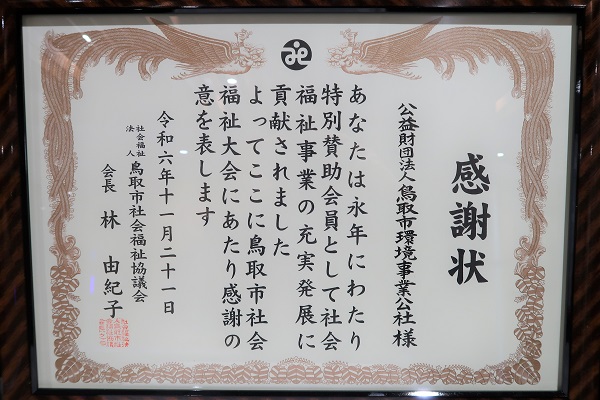 感謝状
公益財団法人鳥取市環境事業公社様
あなたは永年にわたり
特別賛助会員として社会
福祉事業の充実発展に
貢献されました
よってここに鳥取市社会
福祉大会にあたり感謝の
意を表します
令和六年十一月二十一日
社会福祉法人鳥取市社会福祉協議会
会長 林 由紀子